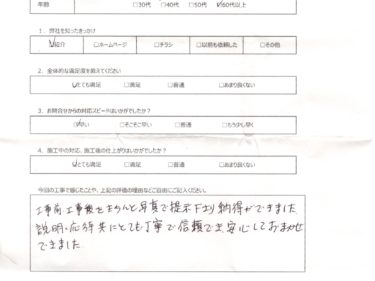 年齢 □30代 □40代 □50代 ☑60代以上
1. 弊社を知ったきっかけ
☑紹介 □ホームページ □チラシ □以前も依頼した □その他
2. 全体的な満足度を教えてください
☑とても満足 □満足 □普通 □あまり良くない
3. お問合せからの対応スピードはいかがでしたか?
☑早い □そこそこ早い □普通 □もう少し早く
4. 施工中の対応、施工後の仕上がりはいかがでしたか?
☑とても満足 □満足 □普通 □あまり良くない
今回の工事で感じたことや、上記の評価の理由などご自由にご記入ください。
工事前工事後をきちんと写真で提示下さり納得ができました
説明・応待共にとても丁寧で信頼でき安心しておまかせ
できました